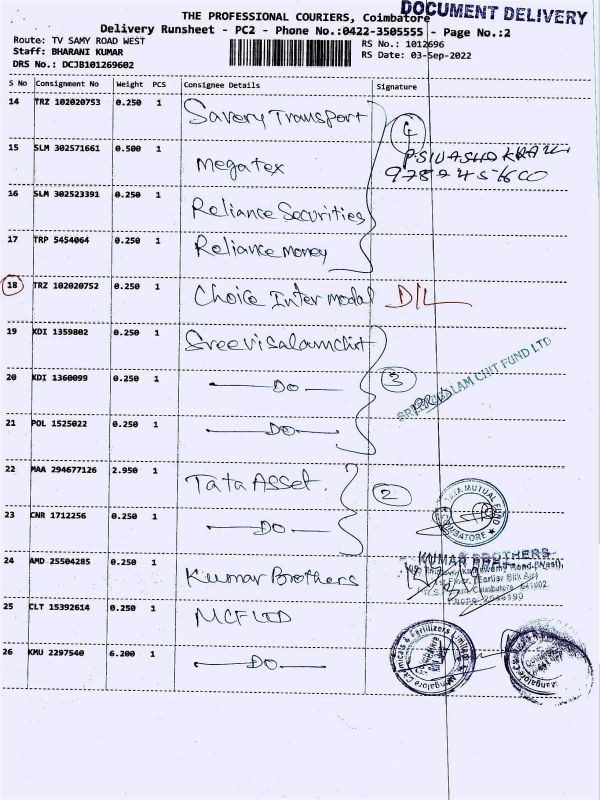 DOCUMENT DELIVERY
THE PROFESSIONAL COURIERS, Coimbatore
Delivery Runsheet - PC2 - Phone No.:0422-3505555 - Page No.:2
Route: TV SAMY ROAD WEST
RS No.: 1012696
Staff: BHARANI KUMAR
RS Date: 03-Sep-2022
DRS No.: DCJB101269602
S No Consignment No Weight PCS Consignee Details Signature
14 TRZ 102020753 0.250 1 Savery Transport
4
15 SLM 302571661 0.500 1 Megatex
16 SLM 302523391 0.250 1 Reliance Securities
17 TRP 5454064 0.250 1 Reliance money
18 TRZ 102020752 0.250 1 Choice Inter modal D/L
19 KDI 1359802 0.250 1 Sreevisalamchit
20 KDI 1360099 0.250 1 DO 3
CHIT FUND LTD
21 POL 1525022 0.250 1 DO
22 MAA 294677126 2.950 1 Tata Asset. 2
TATA MUTUAL FUND
COIMBATORE
23 CNR 1712256 0.250 1 DO
24 AMD 25504285 0.250 1 Kumar Brothers
KUMAR BROTHERS
25 CLT 15392614 0.250 1 MCF LTD
26 KMU 2297540 6.200 1 DO
Mangalore Chemicals & Fertilizers Limited